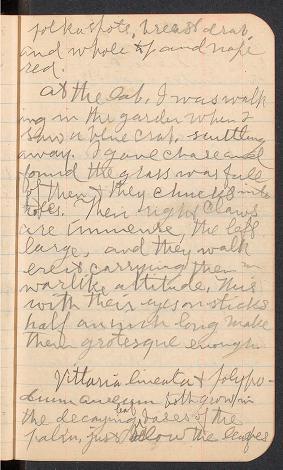 polka spots, breast drab,
and whole top and nape
red.
At the lab, I was walk
ing in the garden when I
saw a blue crab, scuttling
away. I gave chase and
found the grass was full
of them & they chucked into
holes. Their right claws
are immense, the left
large, and they walk
erect carrying them in
warlike attitude. This
with their eyes on sticks
half an inch long make
them grotesque enough.
Vittaria lineata & Polypo-
dium aureum both grow in
the decaying leaf bases of the
palm, just below the leaves